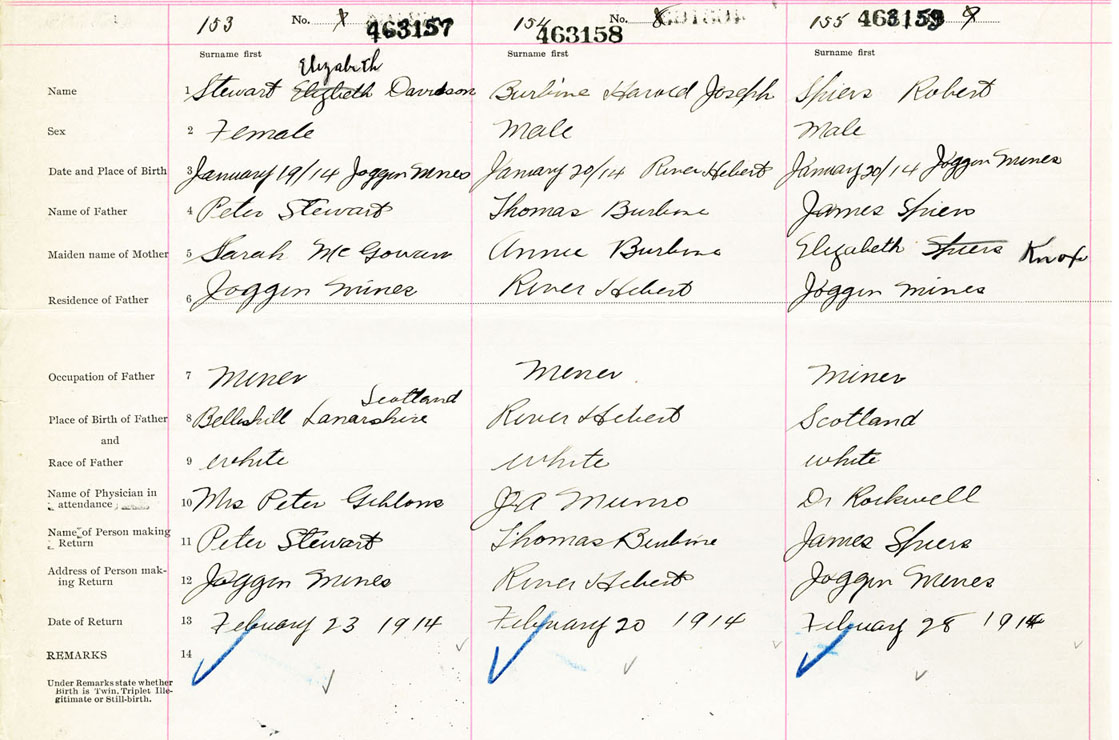 153 No. 463157 154 No. 8 463158 155 463159 9
Surname first Surname first Surname first
Elizabeth
Name 1 Stewart Elizbeth Davidson Burbine Harold Joseph Spiers Robert
Sex 2 Female Male Male
Date and Place of Birth 3 January 19/14 Joggin Mines January 20/14 River Hebert January 20/14 Joggin Mines
Name of Father 4 Peter Stewart Thomas Burbine James Spiers
Maiden name of Mother 5 Sarah McGowan Annie Burbine Elizabeth Spiers Knox
Residence of Father 6 Joggin Mines River Hebert Joggin Mines
Occupation of Father 7 Miner Miner Miner
Scotland
Place of Birth of Father 8 Bellshill Lanarkshire River Hebert Scotland
and
Race of Father 9 White White White
Name of Physician in
attendance 10 Mrs Peter Gibbons Munro Dr Rockwell
Name of Person making
Return 11 Peter Stewart Thomas Burbine James Spiers
Address of Person mak-
ing Return 12 Joggin Mines River Hebert Joggin Mines
Date of Return 13 Febuary 23 1914 Febuary 20 1914 Febuary 28 1914
REMARKS 14
Under Remarks state whether
Birth is Twin, Triplet Ille-
gitimate or Still-birth.